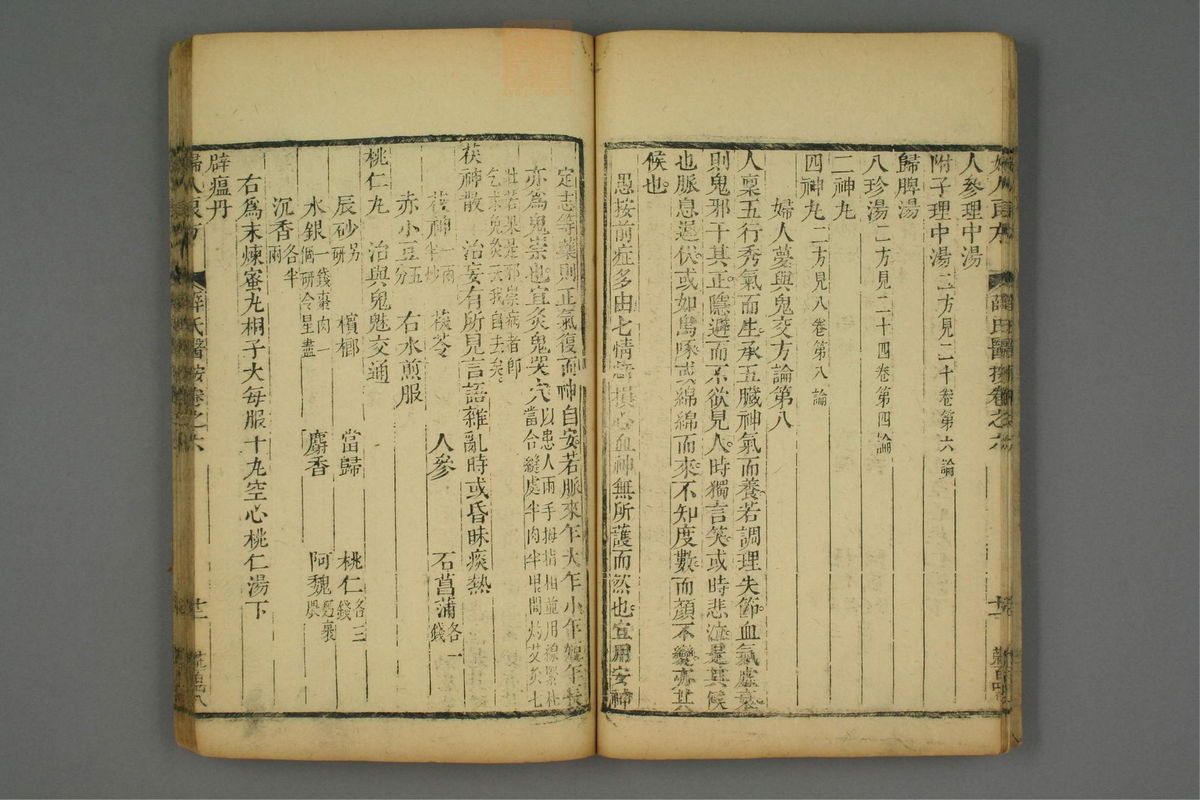 人參理中湯
附子理中湯二方見二十卷第六論
歸脾湯
八珍湯二方見二十四卷第四論
二神丸
四神丸二方見八卷第八論
婦人夢與鬼交方論第八
人稟五行秀氣而生承五臟神氣而養若調理失節血氣虛衰
則鬼邪干其正隱避而不欲見人時獨言笑或時悲泣是其候
也脈息遲伏或如鳥啄或綿綿而來不知度數而顏不變亦其
候也
愚按前症多由七情虧損心血神無所護而然也宜用安神
定志等藥則正氣復而神自安若脈來乍大乍小乍短乍長
亦爲鬼祟也宜灸鬼哭穴以患人兩手拇指相並用線緊札
當合縫處半肉半甲間灼艾灸七
壯若果是邪祟病者卽
乞求免灸云我自去矣
茯神散 治妄有所見言語雜亂時或昏昧痰熱
茯神一兩半炒 茯苓 人參 石菖蒲各一錢
赤小豆五分 右水煎服
桃仁丸 治與鬼魅交通
辰砂另研 檳榔 當歸 桃仁各三錢
水銀一錢棗肉一個研令星盡 麝香 阿魏麪裹煨
沉香各半兩
右爲末煉蜜丸桐子大每服十丸空心桃仁湯下
辟瘟丹
婦人良方 薛氏醫按卷之六